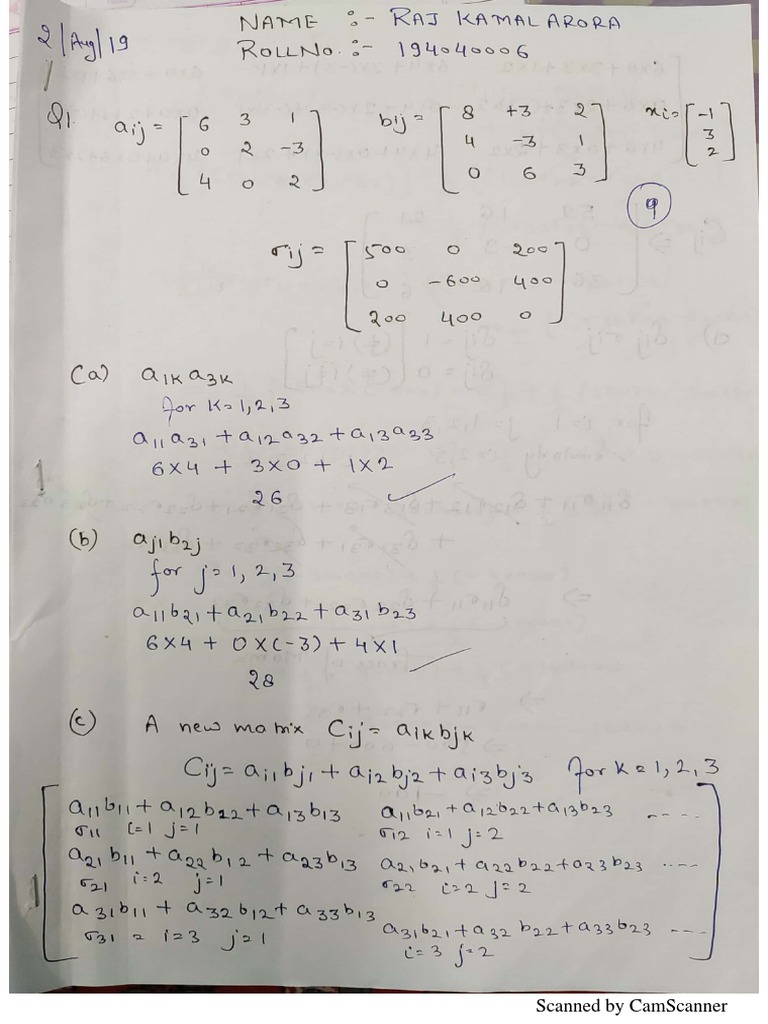 2/Aug/19
NAME :- RAJ KAMAL ARORA
ROLL NO. :- 194040006
Q1. aij = [6 3 1
0 2 -3
4 0 2]
bij = [8 +3 2
4 -3 1
0 6 3]
xi = [-1
3
2]
9
σij = [500 0 200
0 -600 400
200 400 0]
(a) a1k a3k
for k=1,2,3
a11a31 + a12a32 + a13a33
6×4 + 3×0 + 1×2
26
(b) aj1b2j
for j=1,2,3
a11b21 + a21b22 + a31b23
6×4 + 0×(-3) + 4×1
28
(c) A new matrix Cij = aikbjk
Cij = ai1bj1 + ai2bj2 + ai3bj3 for k=1,2,3
a11b11 + a12b22 + a13b13 a11b21 + a12b22 + a13b23 ----
σ11 i=1 j=1 σ12 i=1 j=2
a21b11 + a22b12 + a23b13 a21b21 + a22b22 + a23b23 ----
σ21 i=2 j=1 σ22 i=2 j=2
a31b11 + a32b12 + a33b13 a31b21 + a32b22 + a33b23 ----
σ31 = i=3 j=1 i=3 j=2
Scanned by CamScanner